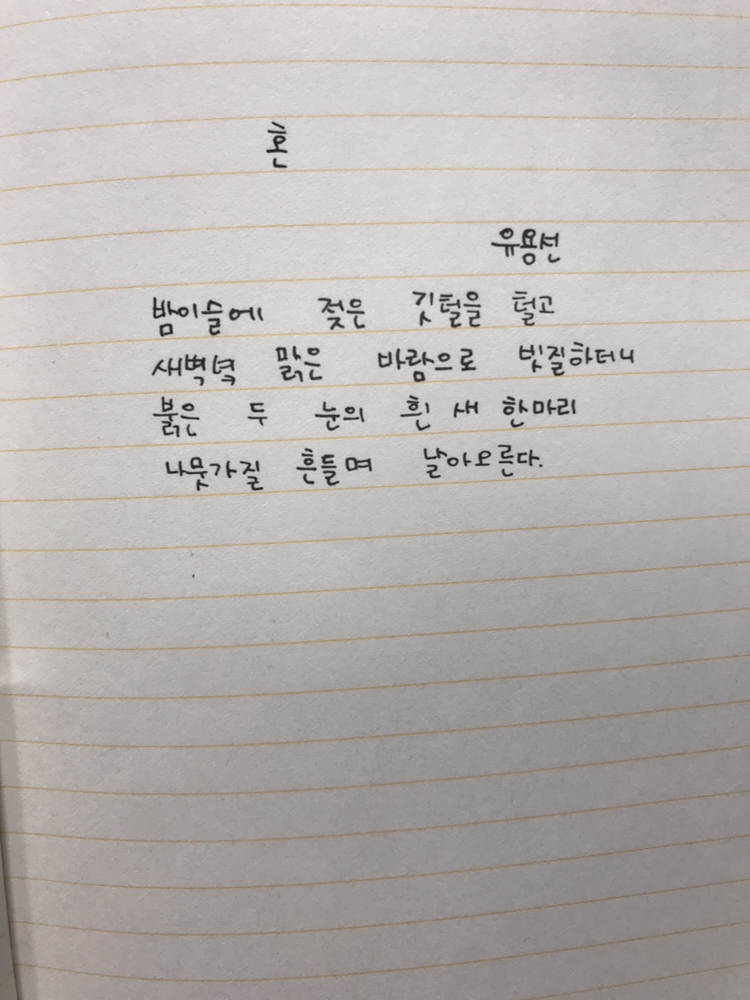 혼
유용선
밤이슬에 젖은 깃털을 털고
새벽녘 맑은 바람으로 빗질하더니
붉은 두 눈의 흰 새 한마리
나뭇가질 흔들며 날아오른다.